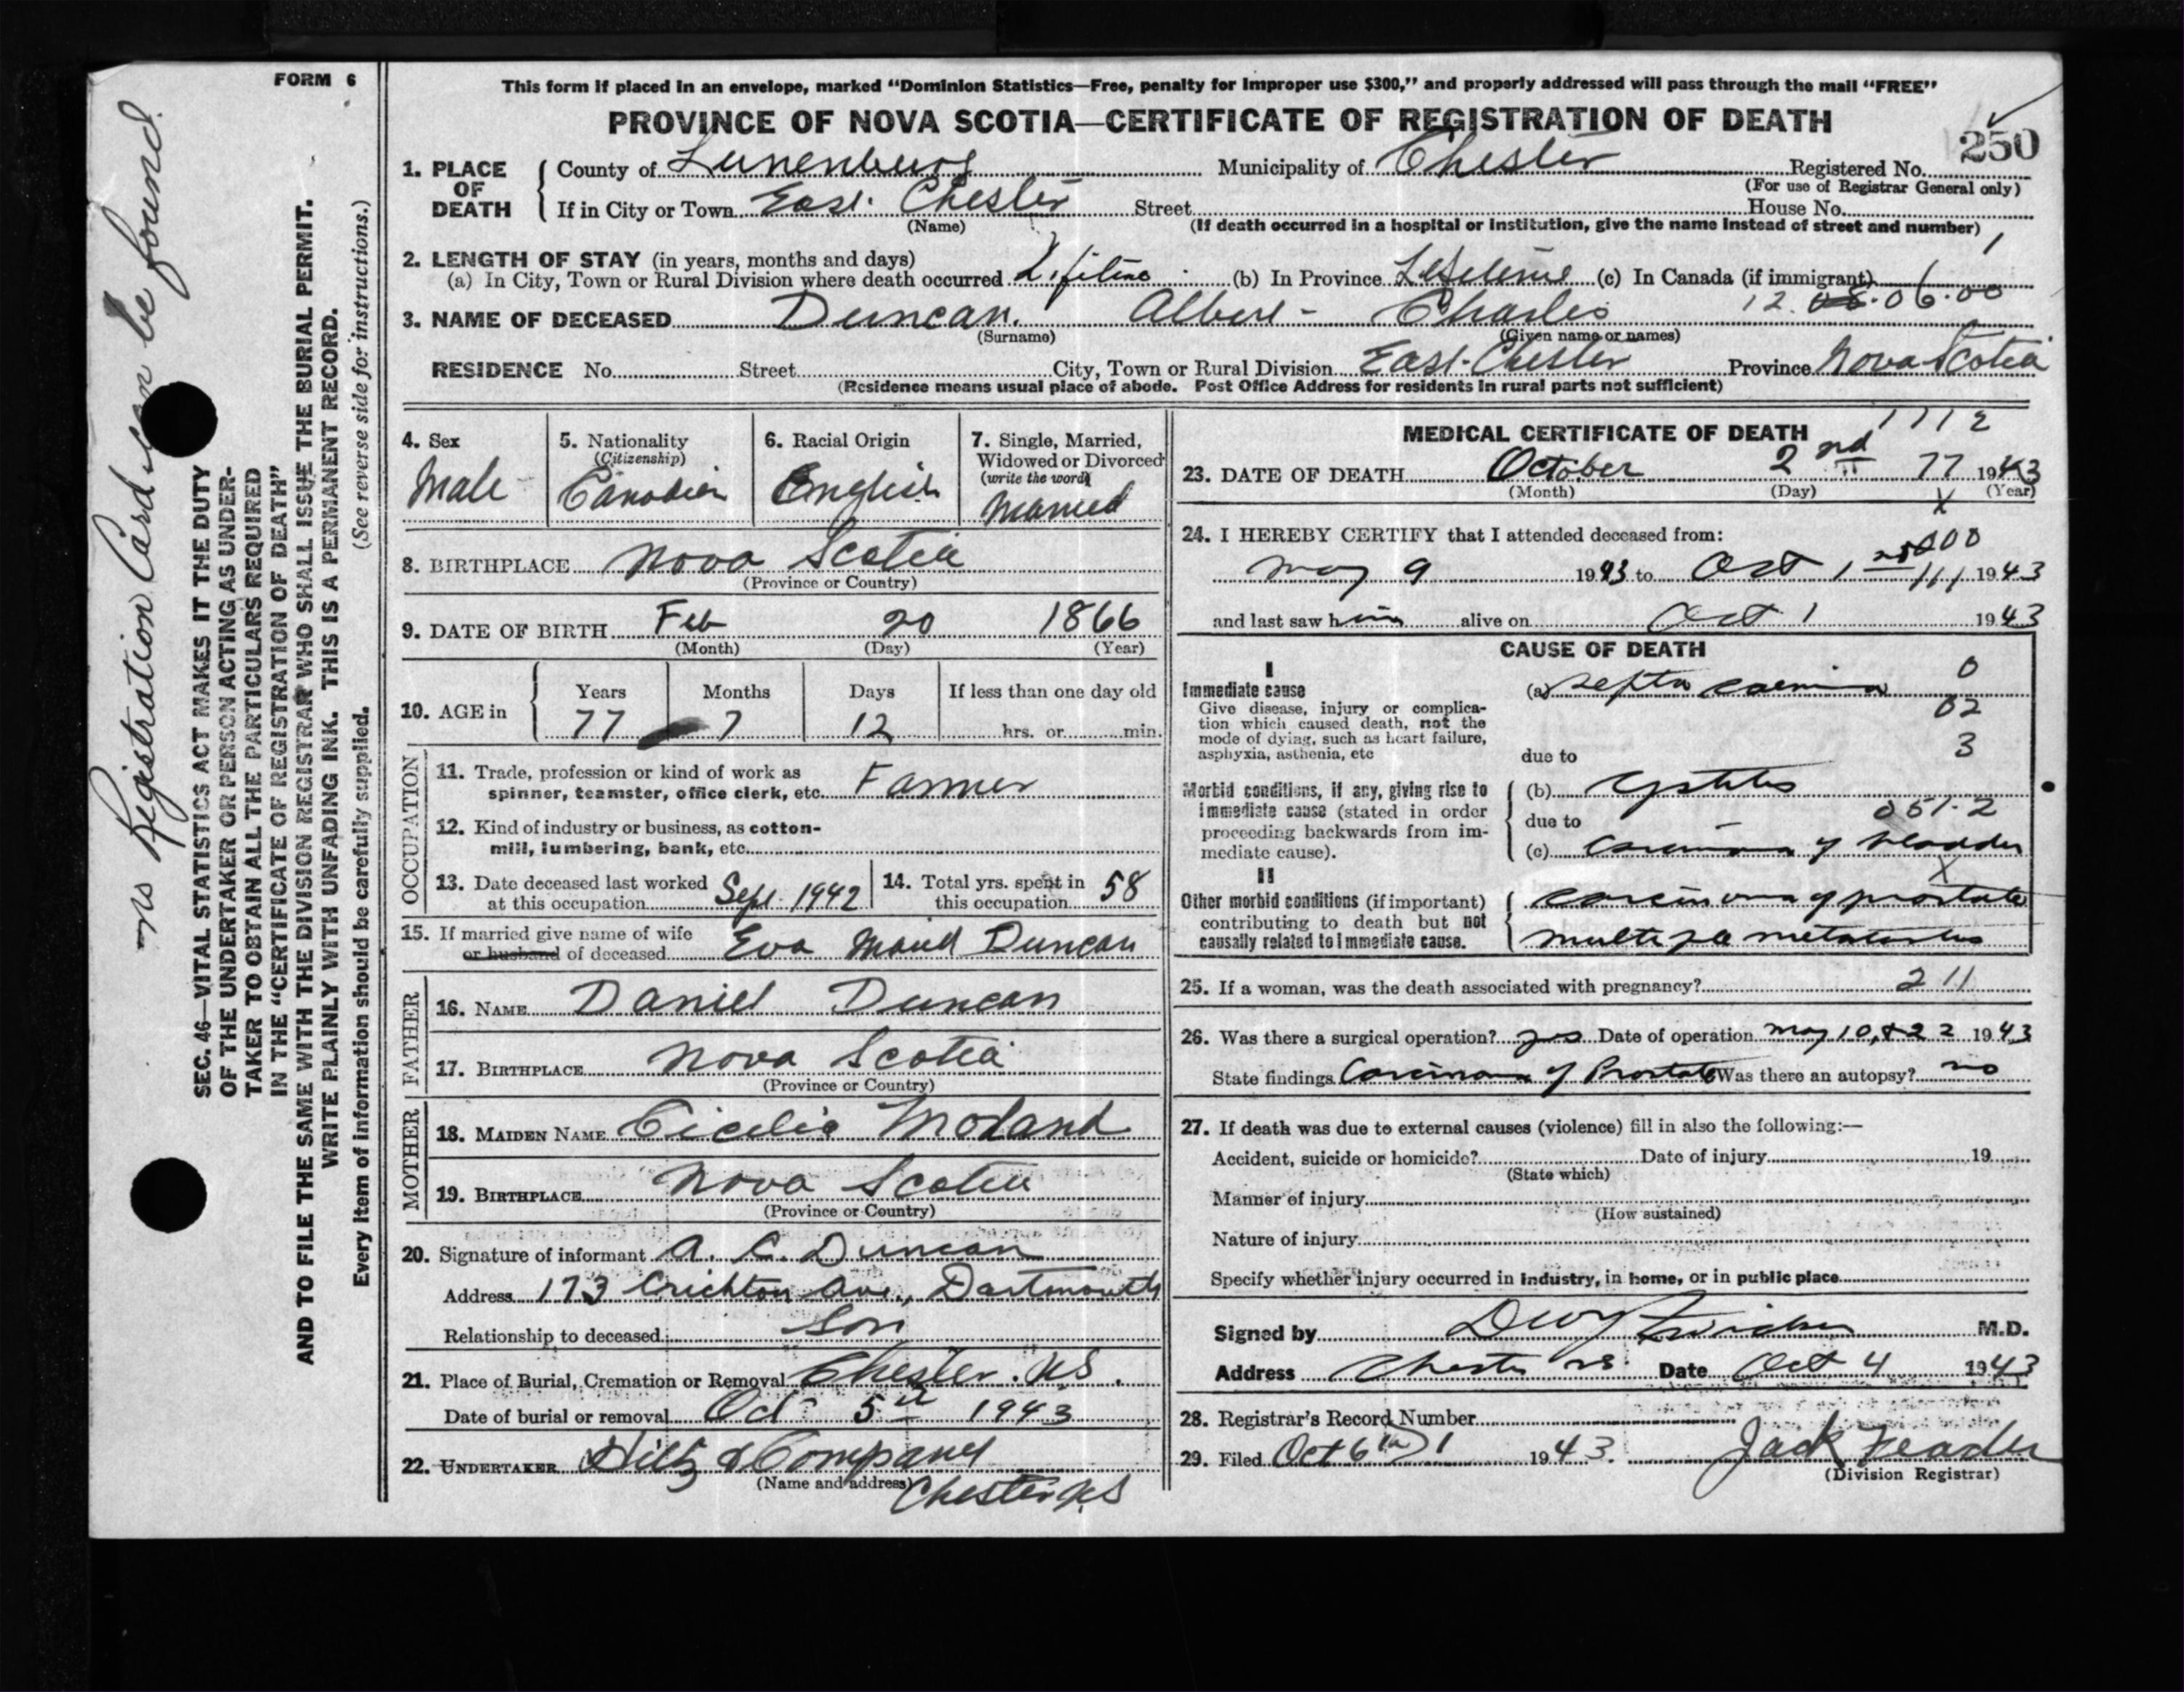 FORM 6
This form if placed in an envelope, marked "Dominion Statistics—Free, penalty for improper use $300," and properly addressed will pass through the mail "FREE"
PROVINCE OF NOVA SCOTIA—CERTIFICATE OF REGISTRATION OF DEATH
250
1. PLACE OF DEATH
County of Lunenburg Municipality of Chester Registered No.
(For use of Registrar General only)
If in City or Town East Chester Street House No.
(Name) (If death occurred in a hospital or institution, give the name instead of street and number)
2. LENGTH OF STAY (in years, months and days)
(a) In City, Town or Rural Division where death occurred Lifetime (b) In Province Lifetime (c) In Canada (if immigrant)
3. NAME OF DECEASED Duncan. Albert - Charles 12. 06.00
(Surname) (Given name or names)
RESIDENCE No. Street City, Town or Rural Division East Chester Province Nova Scotia
(Residence means usual place of abode. Post Office Address for residents in rural parts not sufficient)
4. Sex
Male
5. Nationality
(Citizenship)
Canadian
6. Racial Origin
English
7. Single, Married, Widowed or Divorced
(write the word)
Married
8. BIRTHPLACE Nova Scotia
(Province or Country)
9. DATE OF BIRTH Feb 20 1866
(Month) (Day) (Year)
10. AGE in
Years Months Days If less than one day old
77 7 12 hrs. or min.
OCCUPATION
11. Trade, profession or kind of work as
spinner, teamster, office clerk, etc. Farmer
12. Kind of industry or business, as cotton-
mill, lumbering, bank, etc.
13. Date deceased last worked
at this occupation Sept 1942
14. Total yrs. spent in
this occupation 58
15. If married give name of wife
or husband of deceased Eva Maud Duncan
FATHER
16. NAME Daniel Duncan
17. BIRTHPLACE Nova Scotia
(Province or Country)
MOTHER
18. MAIDEN NAME Cicelia Moland
19. BIRTHPLACE Nova Scotia
(Province or Country)
20. Signature of informant A. C. Duncan
Address 173 Crichton Ave., Dartmouth
Relationship to deceased Son
21. Place of Burial, Cremation or Removal Chester. NS.
Date of burial or removal Oct 5th 1943
22. UNDERTAKER Hiltz & Company
(Name and address) Chester NS
MEDICAL CERTIFICATE OF DEATH
1112
23. DATE OF DEATH October 2nd 77 1943
(Month) (Day) (Year)
24. I HEREBY CERTIFY that I attended deceased from:
May 9 1943 to Oct 1 1943
and last saw him alive on Oct 1 1943
CAUSE OF DEATH
I
Immediate cause
Give disease, injury or complica-
tion which caused death, not the
mode of dying, such as heart failure,
asphyxia, asthenia, etc
(a) septa caemia 0
02
due to 3
Morbid conditions, if any, giving rise to
immediate cause (stated in order
proceeding backwards from im-
mediate cause).
(b) cystitis
due to 051.2
(c) Carcinoma of bladder
II
Other morbid conditions (if important)
contributing to death but not
causally related to immediate cause.
carcinoma of prostate
multiple metastases
25. If a woman, was the death associated with pregnancy? 211
26. Was there a surgical operation? yes Date of operation May 10, & 22 1943
State findings Carcinoma of Prostate Was there an autopsy? no
27. If death was due to external causes (violence) fill in also the following:—
Accident, suicide or homicide? Date of injury 19
(State which)
Manner of injury
(How sustained)
Nature of injury
Specify whether injury occurred in industry, in home, or in public place
Signed by M.D.
Address Chester NS. Date Oct 4 1943
28. Registrar's Record Number
29. Filed Oct 6th 1943. Jack
(Division Registrar)
no Registration Card can be found.
SEC. 46—VITAL STATISTICS ACT MAKES IT THE DUTY
OF THE UNDERTAKER OR PERSON ACTING AS UNDER-
TAKER TO OBTAIN ALL THE PARTICULARS REQUIRED
IN THE "CERTIFICATE OF REGISTRATION OF DEATH"
AND TO FILE THE SAME WITH THE DIVISION REGISTRAR WHO SHALL ISSUE THE BURIAL PERMIT.
WRITE PLAINLY WITH UNFADING INK. THIS IS A PERMANENT RECORD.
Every item of information should be carefully supplied. (See reverse side for instructions.)